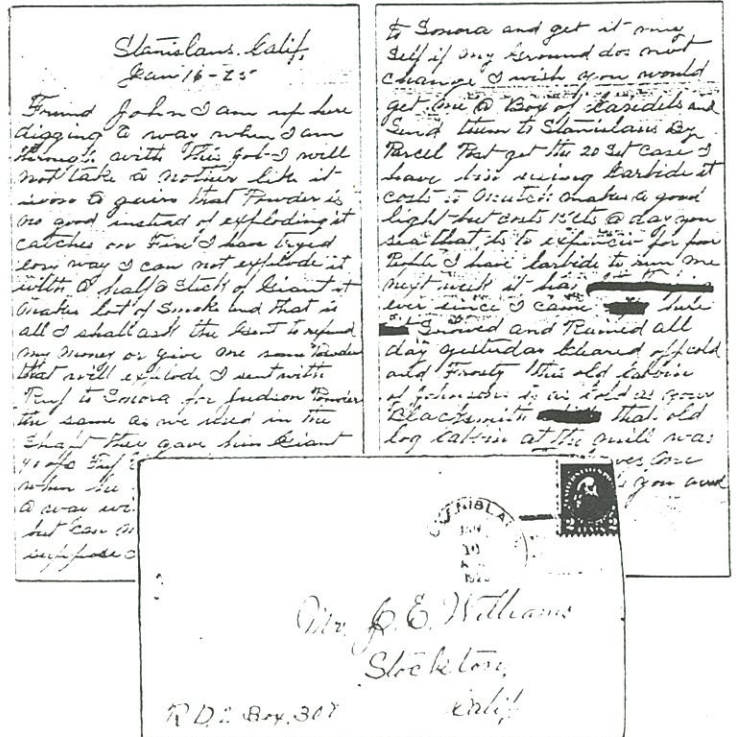 Stanislaus. Calif,
Jan 16-25
Friend John I am up here
digging a way when I am
through with This Job I will
not take a nother like it
again That Powder is
no good instead of exploding it
catches on Fire I have tryed
way I can not explode it
with a half a Stick of Giant it
Makes lot of Smoke and that is
all I shall ask the to refund
my money or give me some Powder
that will explode I sent with
to Sonora for Judson Powder
the same as we used in the
Shaft they gave him Giant
when he
a way
but can
suppose
to Sonora and get it my
Self if my Ground dos not
change I wish you would
get me a Box of and
Send them to Stanislaus By
Parcel Post get the 20 Case I
have Carbide it
costs to mutch makes a good
light but costs 15cts a day you
sea that is to for poor
People I have Carbide to run me
next week it has
ever since I came here
Snowed and Rained all
day yesterday Cleared off cold
and Frosty this old Cabbin
of Johnsons is as cold as your
Blacksmith that old
log Cabbin at the mill was
one
you and
JAN
Mr. J. E. Williams
Stockton,
Calif
R.D.2. Box, 307